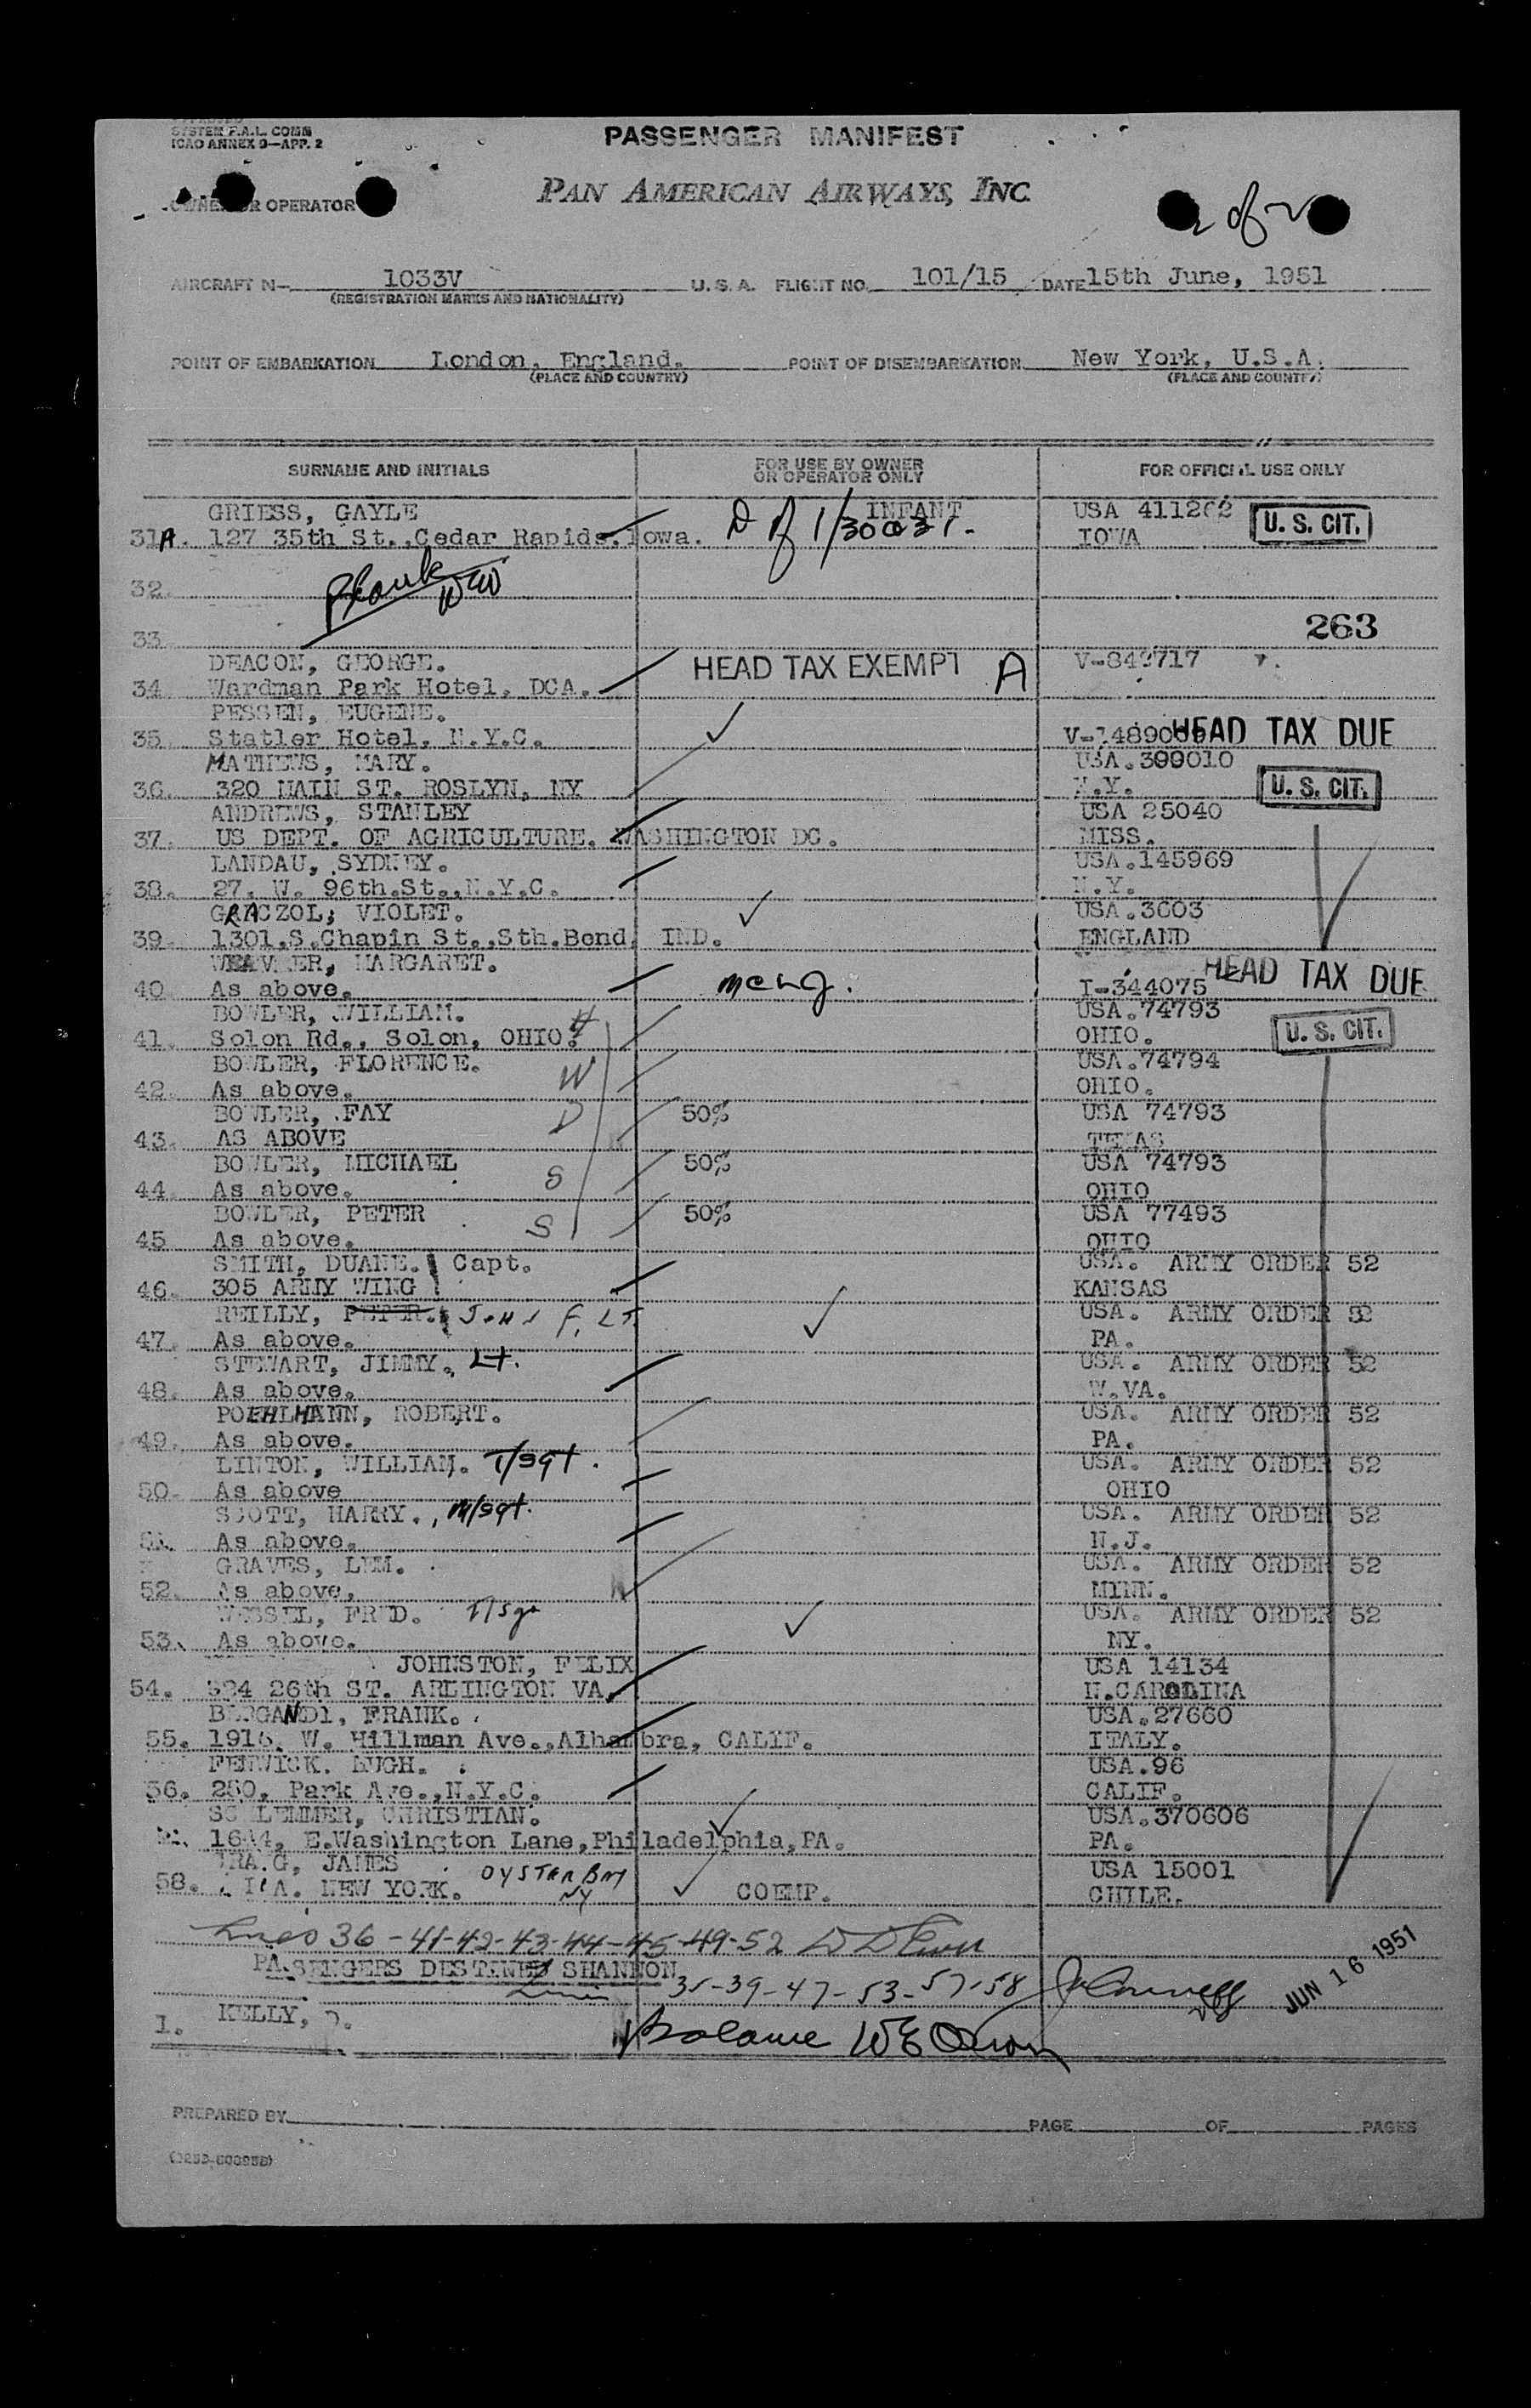 SYSTEM F.A.L. COMM
ICAO ANNEX 9—APP. 2
PASSENGER MANIFEST
PAN AMERICAN AIRWAYS, INC.
OWNER OR OPERATOR
2 of 2
AIRCRAFT N— 1033V U. S. A. FLIGHT NO. 101/15 DATE 15th June, 1951
(REGISTRATION MARKS AND NATIONALITY)
POINT OF EMBARKATION London, England. POINT OF DISEMBARKATION New York, U.S.A.
(PLACE AND COUNTRY) (PLACE AND COUNTRY)
SURNAME AND INITIALS FOR USE BY OWNER OR OPERATOR ONLY FOR OFFICIAL USE ONLY
GRIESS, GAYLE INFANT USA 411262 U. S. CIT.
31A. 127 35th St.,Cedar Rapids.Iowa. D of 1/30 IOWA
32. Blank
33. 263
DEACON, GEORGE. HEAD TAX EXEMPT A V-842717
34. Wardman Park Hotel, DCA.
PESSEN, EUGENE.
35. Statler Hotel, N.Y.C. HEAD TAX DUE
MATHEWS, MARY. USA.399010
36. 320 MAIN ST. ROSLYN, NY N.Y. U. S. CIT.
ANDREWS, STANLEY USA 25040
37. US DEPT. OF AGRICULTURE. WASHINGTON DC. MISS.
LANDAU, SYDNEY. USA.145969
38. 27. W. 96th.St.,N.Y.C. N.Y.
GRACZOL, VIOLET. USA.3603
39. 1301.S.Chapin St.,Sth.Bend, IND. ENGLAND
WEAVER, MARGARET. HEAD TAX DUE
40. As above. I-344075
BOWLER, WILLIAM. H USA.74793
41. Solon Rd., Solon, OHIO. OHIO. U. S. CIT.
BOWLER, FLORENCE. W USA.74794
42. As above. OHIO.
BOWLER, FAY D 50% USA 74793
43. AS ABOVE TEXAS
BOWLER, MICHAEL S 50% USA 74793
44. As above. OHIO
BOWLER, PETER S 50% USA 77493
45. As above. OHIO
SMITH, DUANE. Capt. USA. ARMY ORDER 52
46. 305 ARMY WING KANSAS
REILLY, PETER. John F. LT. USA. ARMY ORDER 52
47. As above. PA.
STEWART, JIMMY. Lt. USA. ARMY ORDER 52
48. As above. W.VA.
POEHLMANN, ROBERT. USA. ARMY ORDER 52
49. As above. PA.
LINTON, WILLIAM. T/sgt. USA. ARMY ORDER 52
50. As above OHIO
SCOTT, HARRY., M/sgt. USA. ARMY ORDER 52
51. As above. N.J.
GRAVES, LEM. USA. ARMY ORDER 52
52. As above, MINN.
WESSEL, FRED. T/Sgt USA. ARMY ORDER 52
53. As above. NY.
JOHNSTON, FELIX USA 14134
54. 26th ST. ARLINGTON VA. N.CAROLINA
BERGANDI, FRANK. USA.27660
55. W. Hillman Ave.,Alhambra, CALIF. ITALY.
FENWICK. HUGH. USA.96
56. 250, Park Ave.,N.Y.C. CALIF.
SCHLEMMER, CHRISTIAN. USA.370606
E.Washington Lane,Philadelphia,PA. PA.
JAMES OYSTER BAY NY USA 15001
58. NEW YORK. COEMP. CHILE.
Lines 36-41-42-43-44-45-49-52
PASSENGERS DESTINED SHANNON
Lines 35-39-47-53-57-58 JUN 16 1951
1. KELLY,
Balance
PREPARED BY PAGE OF PAGES